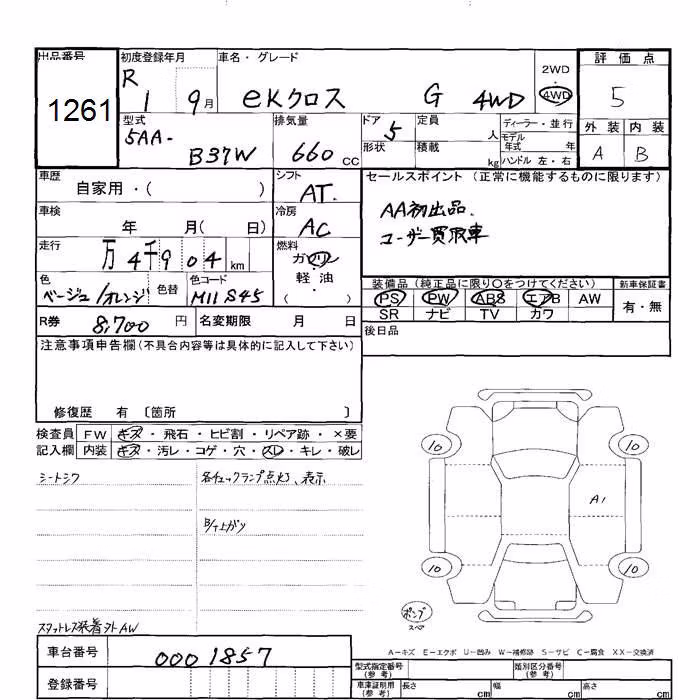 出品番号 初度登録年月 車名・グレード 2WD ・ 4WD 評価点
1261 R 1 9月 eKクロス G 4WD 5
型式 5AA- B37W 排気量 660 cc ドア 5 定員 人 ディーラー・並行 外装 内装
形状 積載 kg モデル年式 年 ハンドル 左・右 A B
車歴 自家用・( ) シフト AT. セールスポイント (正常に機能するものに限ります)
車検 年 月( 日) 冷房 AC AA初出品.
ユーザー買取車
走行 万 4千 9 0 4 km 燃料 ガソリン・軽油・( )
色 ベージュ/オレンジ 色替 色コード M11 S45 装備品 (純正品に限り○をつけてください) 新車保証書
PS PW ABS エアB AW 有・無
SR ナビ TV カワ
R券 8,700 円 名変期限 月 日 後日品
注意事項申告欄(不具合内容等は具体的に記入して下さい)
修復歴 有 〔箇所 〕
検査員 FW キズ・飛石・ヒビ割・リペア跡・×要
記入欄 内装 キズ・汚レ・コゲ・穴・スレ・キレ・破レ
シートシワ 各チェックランプ点灯、表示
10 10
A1
下上がり
10 10
テンプ
スペア
スタットレス装着 外AW
A−キズ E−エクボ U−凹み W−補修跡 S−サビ C−腐食 XX−交換済
車台番号 0001857
型式指定番号 (参考) 類別区分番号 (参考)
登録番号 車庫証明用 (参考) 長さ cm 幅 cm 高さ cm